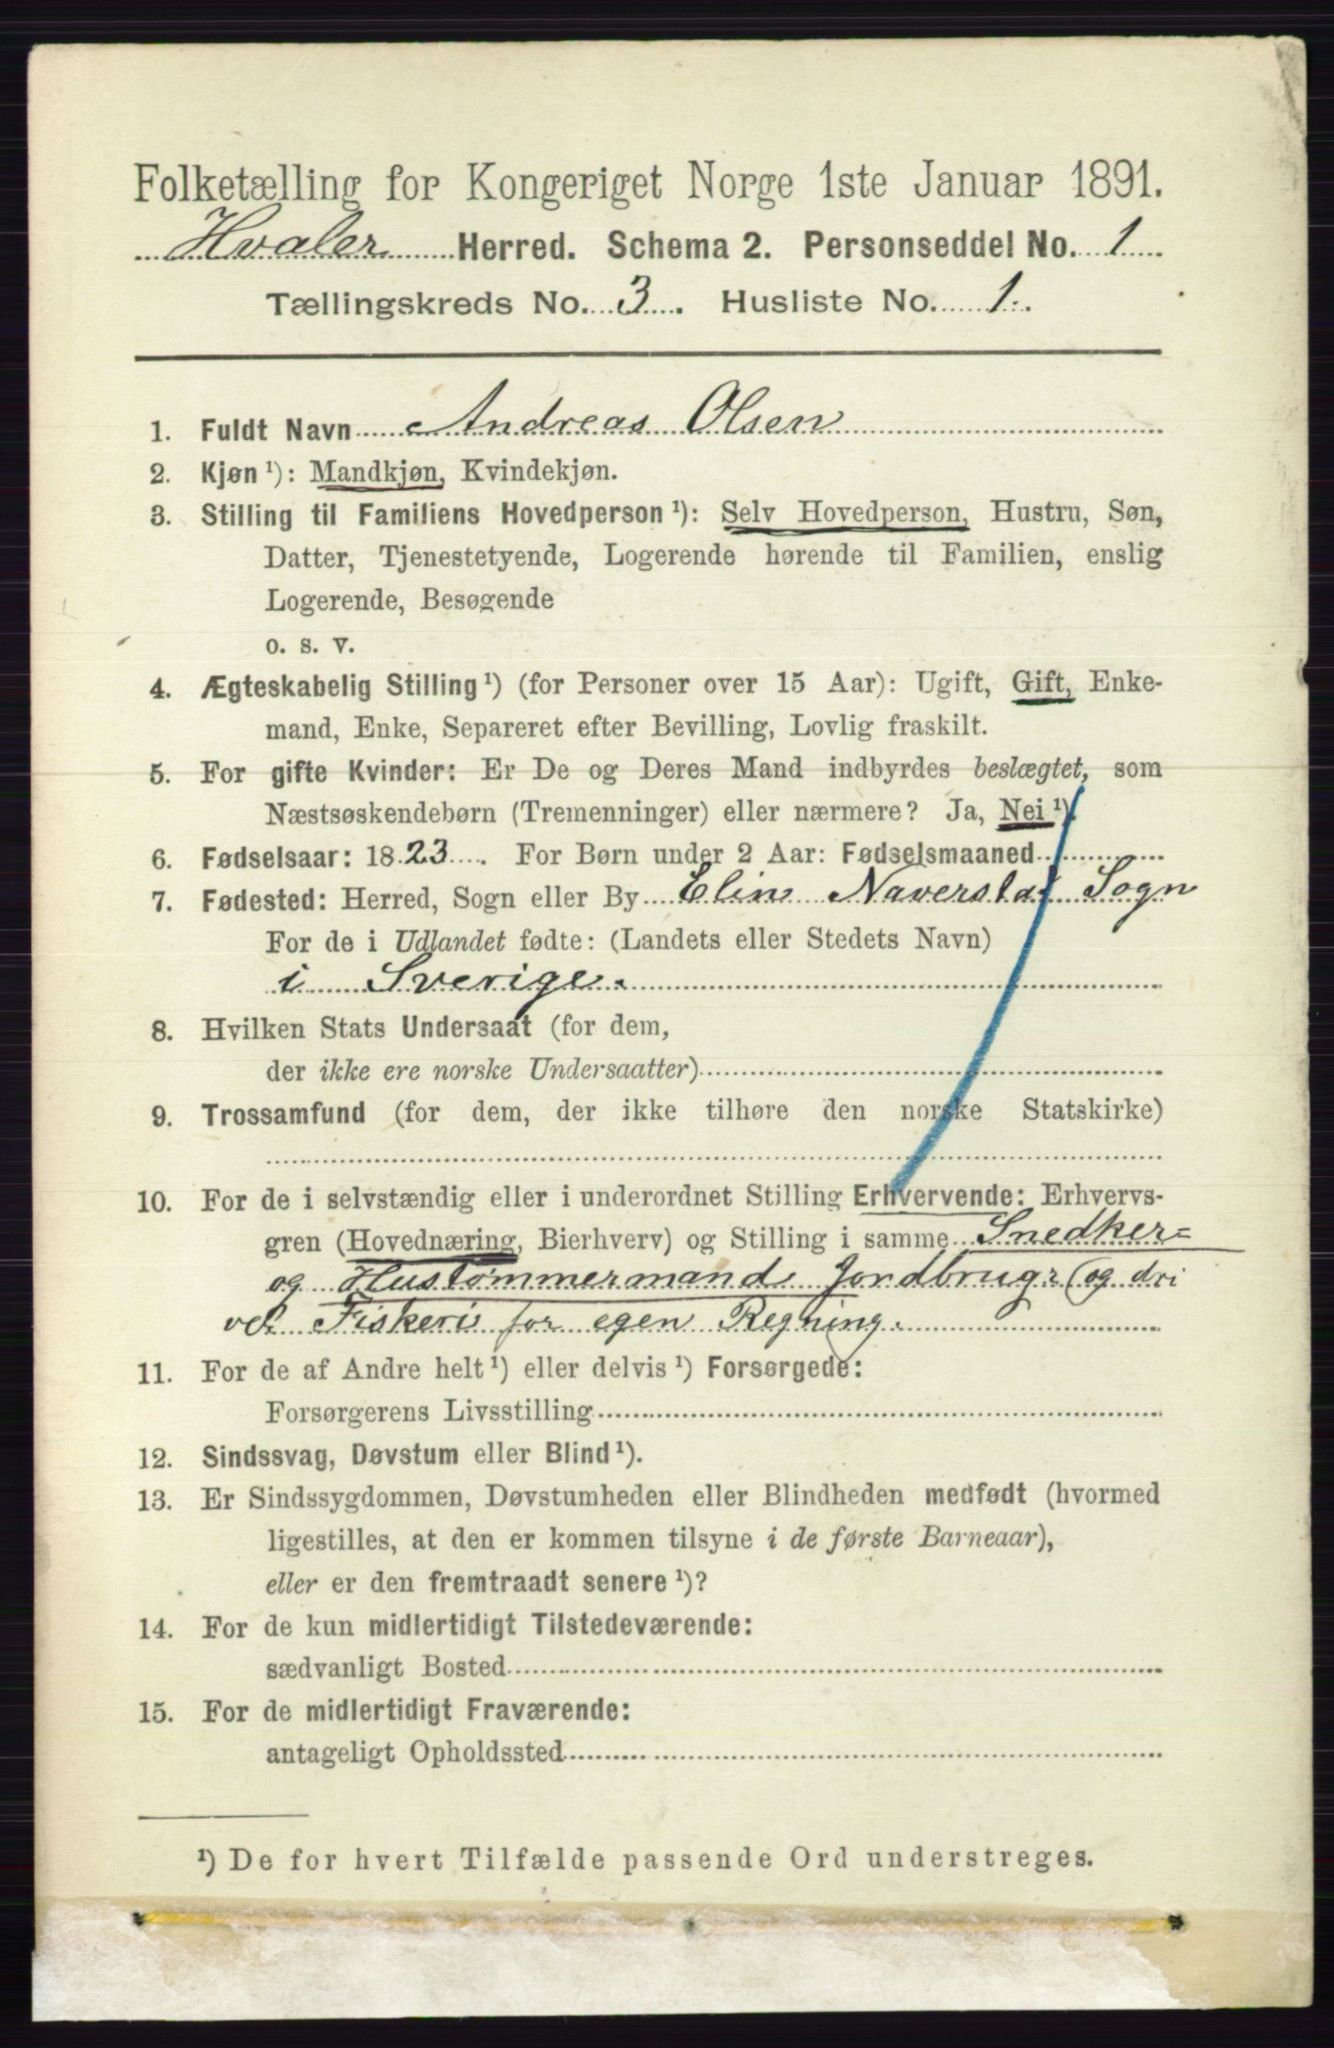 Folketælling for Kongeriget Norge 1ste Januar 1891.
Hvaler Herred. Schema 2. Personseddel No. 1
Tællingskreds No. 3. Husliste No. 1.
1. Fuldt Navn Andreas Olsen
2. Kjøn¹): Mandkjøn, Kvindekjøn.
3. Stilling til Familiens Hovedperson¹): Selv Hovedperson, Hustru, Søn,
Datter, Tjenestetyende, Logerende hørende til Familien, enslig
Logerende, Besøgende
o. s. v.
4. Ægteskabelig Stilling¹) (for Personer over 15 Aar): Ugift, Gift, Enke-
mand, Enke, Separeret efter Bevilling, Lovlig fraskilt.
5. For gifte Kvinder: Er De og Deres Mand indbyrdes beslægtet, som
Næstsøskendebørn (Tremenninger) eller nærmere? Ja, Nei¹).
6. Fødselsaar: 1823. For Børn under 2 Aar: Fødselsmaaned
7. Fødested: Herred, Sogn eller By Elin Naverstat Sogn
For de i Udlandet fødte: (Landets eller Stedets Navn)
i Sverige.
8. Hvilken Stats Undersaat (for dem,
der ikke ere norske Undersaatter)
9. Trossamfund (for dem, der ikke tilhøre den norske Statskirke)
10. For de i selvstændig eller i underordnet Stilling Erhvervende: Erhvervs-
gren (Hovednæring, Bierhverv) og Stilling i samme Snedker=
og Hustømmermand Jordbrug (og dri
ver Fiskeri for egen Regning.
11. For de af Andre helt¹) eller delvis¹) Forsørgede:
Forsørgerens Livsstilling
12. Sindssvag, Døvstum eller Blind¹).
13. Er Sindssygdommen, Døvstumheden eller Blindheden medfødt (hvormed
ligestilles, at den er kommen tilsyne i de første Barneaar),
eller er den fremtraadt senere¹)?
14. For de kun midlertidigt Tilstedeværende:
sædvanligt Bosted
15. For de midlertidigt Fraværende:
antageligt Opholdssted
¹) De for hvert Tilfælde passende Ord understreges.